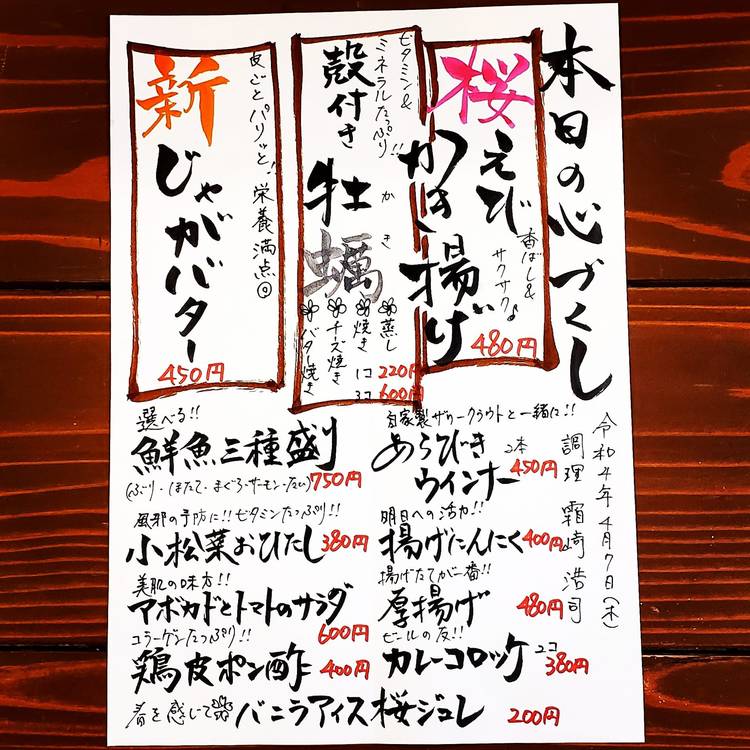 本日の心づくし
桜えび
かき揚げ
香ばし&
サクサク♪
480円
ビタミン&
ミネラルたっぷり!!
殻付き
牡蠣
かき
蒸し
焼き
チーズ焼き
バター焼き
1コ 220円
3コ 600円
新じゃがバター
皮ごとパリッと!栄養満点
450円
令和4年4月7日(木)
調理 霜崎浩司
選べる!!
鮮魚三種盛り
(ぶり・ほたて・まぐろ・サーモン・たい) 750円
風邪の予防に!!ビタミンたっぷり!!
小松菜おひたし 380円
美肌の味方!!
アボカドとトマトのサラダ
600円
コラーゲンたっぷり!!
鶏皮ポン酢 400円
自家製ザワークラウトと一緒に!!
あらびき
ウインナー 2本 450円
明日への活力!!
揚げにんにく 400円
揚げたてが一番!!
厚揚げ 480円
ビールの友!!
カレーコロッケ 2コ 380円
春を感じて バニラアイス桜ジュレ 200円